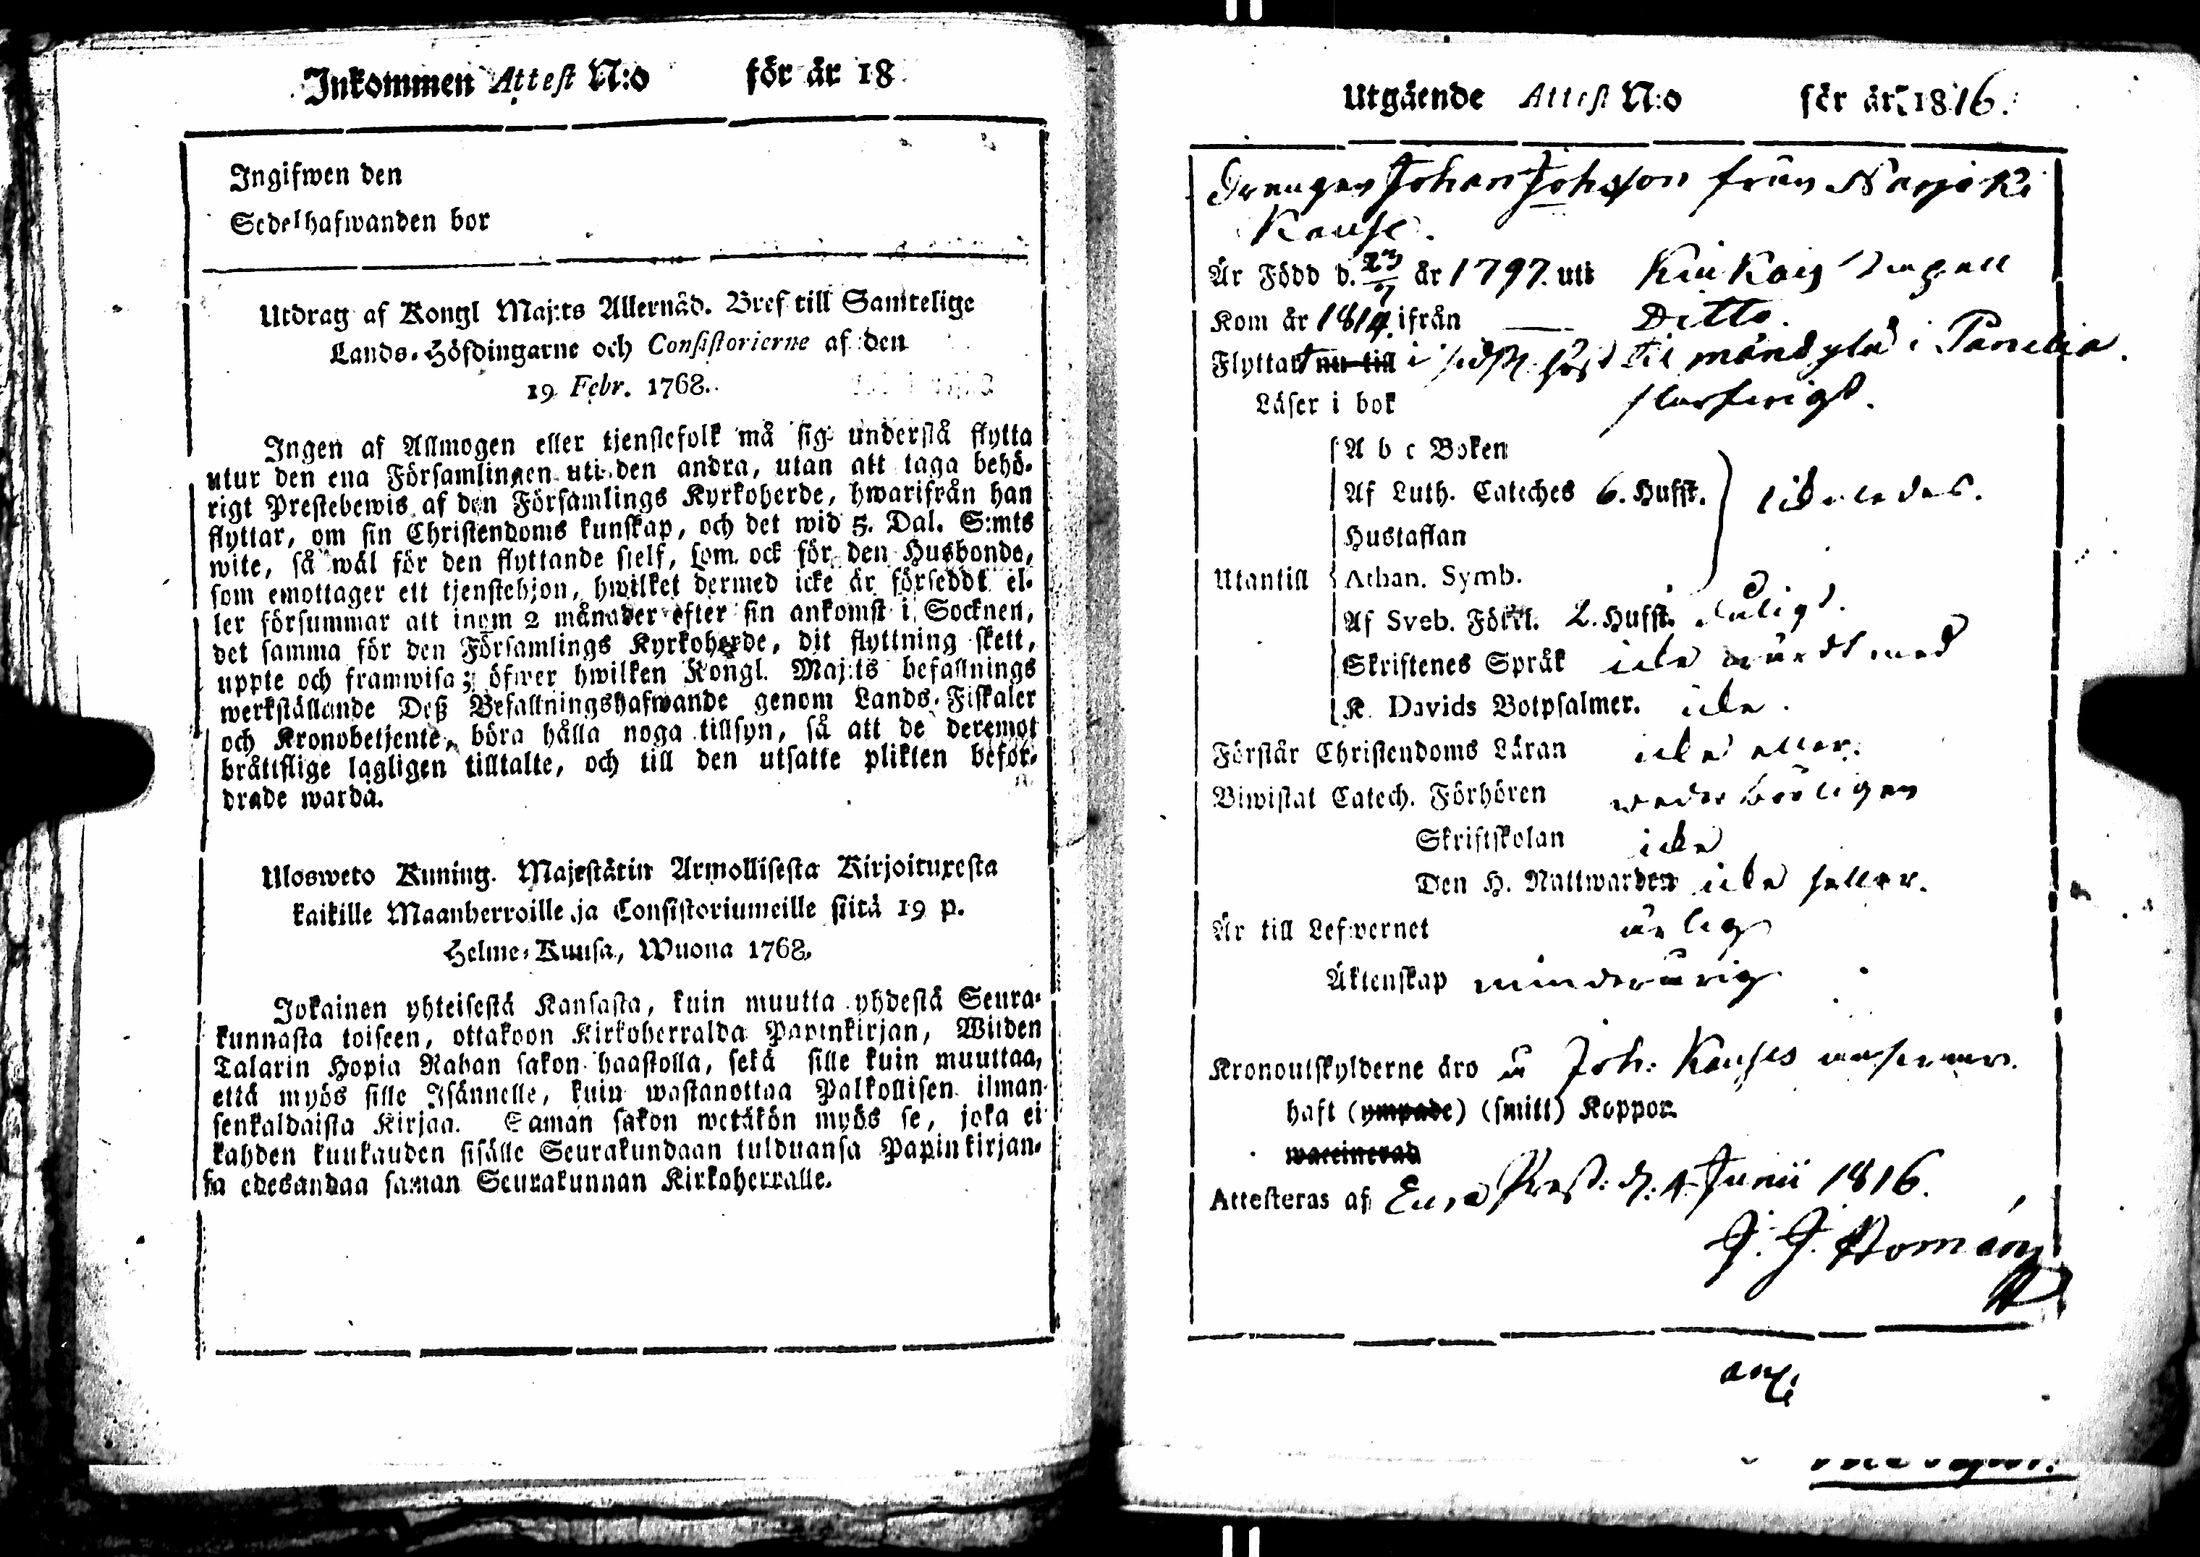 Inkommen Attest N:o för år 18
Ingifwen den
Sedelhafwanden bor
Utdrag af Kongl Maj:ts Allernåd. Bref till Samtelige
Lands-Höfdingarne och Consistorierne af den
19 Febr. 1768.
Ingen af Allmogen eller tjenstefolk må sig understå flytta
utur den ena Församlingen uti den andra, utan att taga behö-
rigt Prestebewis af den Församlings Kyrkoherde, hwarifrån han
flyttar, om sin Christendoms kunskap, och det wid 5. Dal. S:mts
wite, så wäl för den flyttande sielf, som ock för den Husbonde,
som emottager ett tjenstehjon, hwilket dermed icke är förseddt el-
ler försummar att inom 2 månader efter sin ankomst i Socknen,
det samma för den Församlings Kyrkoherde, dit flyttning skett,
uppte och framwisa; öfwer hwilken Kongl. Maj:ts befallnings
werkställande Deß Befallningshafwande genom Lands-Fiskaler
och Kronobetjente, böra hålla noga tillsyn, så att de deremot
bråttslige lagligen tilltalte, och till den utsatte plikten beför-
drade warda.
Ulosweto Kuning. Majestätin Armollisesta Kirjoituxesta
kaikille Maanherroille ja Consistoriumeille siitä 19 p.
Helme-Kuusa, Wuona 1768.
Jokainen yhteisestä Kansasta, kuin muutta yhdestä Seura-
kunnasta toiseen, ottakoon Kirkoherralda Papinkirjan, Wiiden
Talarin Hopia Rahan sakon haastolla, sekä sille kuin muuttaa,
että myös sille Isännelle, kuin wastanottaa Palkollisen ilman
senkaldaista Kirjaa. Saman sakon wetäkön myös se, joka ei
kahden kuukauden sisälle Seurakundaan tulduansa Papinkirjan-
sa edesandaa saman Seurakunnan Kirkoherralle.
Utgående Attest N:o för år 1816.
Drengen Johan Johsson från Narjoki
Kause.
Är Född d. 23/7 år 1797. uti Kiukais Capell
Kom år 1814. ifrån Ditto.
Flyttat nu till i sidst. höst til i Panelia.
Läser i bok slarfwigt.
A b c Boken
Af Luth. Cateches 6. Hufst. likaledes.
Hustaflan
Utantill Athan. Symb.
Af Sveb. Förkl. 2. Hufst. dåligt.
Skriftenes Språk icke med
K. Davids Botpsalmer. icke.
Förstår Christendoms Läran icke eller.
Biwistat Catech. Förhören
Skriftskolan icke
Den H. Nattwarden icke heller.
Är till Lefwernet ärlig
Äktenskap minderårig
Kronoutskylderne äro å Joh: Kauses
haft (ympade) (smitt) Koppor.
waccinerad
Attesteras af Eura Prest: d. 4. Junii 1816.
J. J. Román